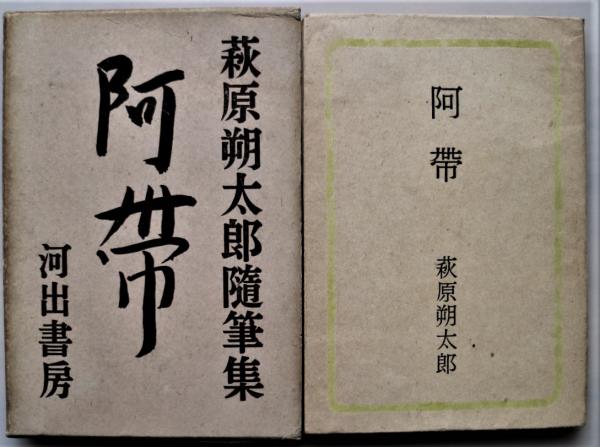 萩原朔太郎隨筆集
阿帶
河出書房
阿帶
萩原朔太郎